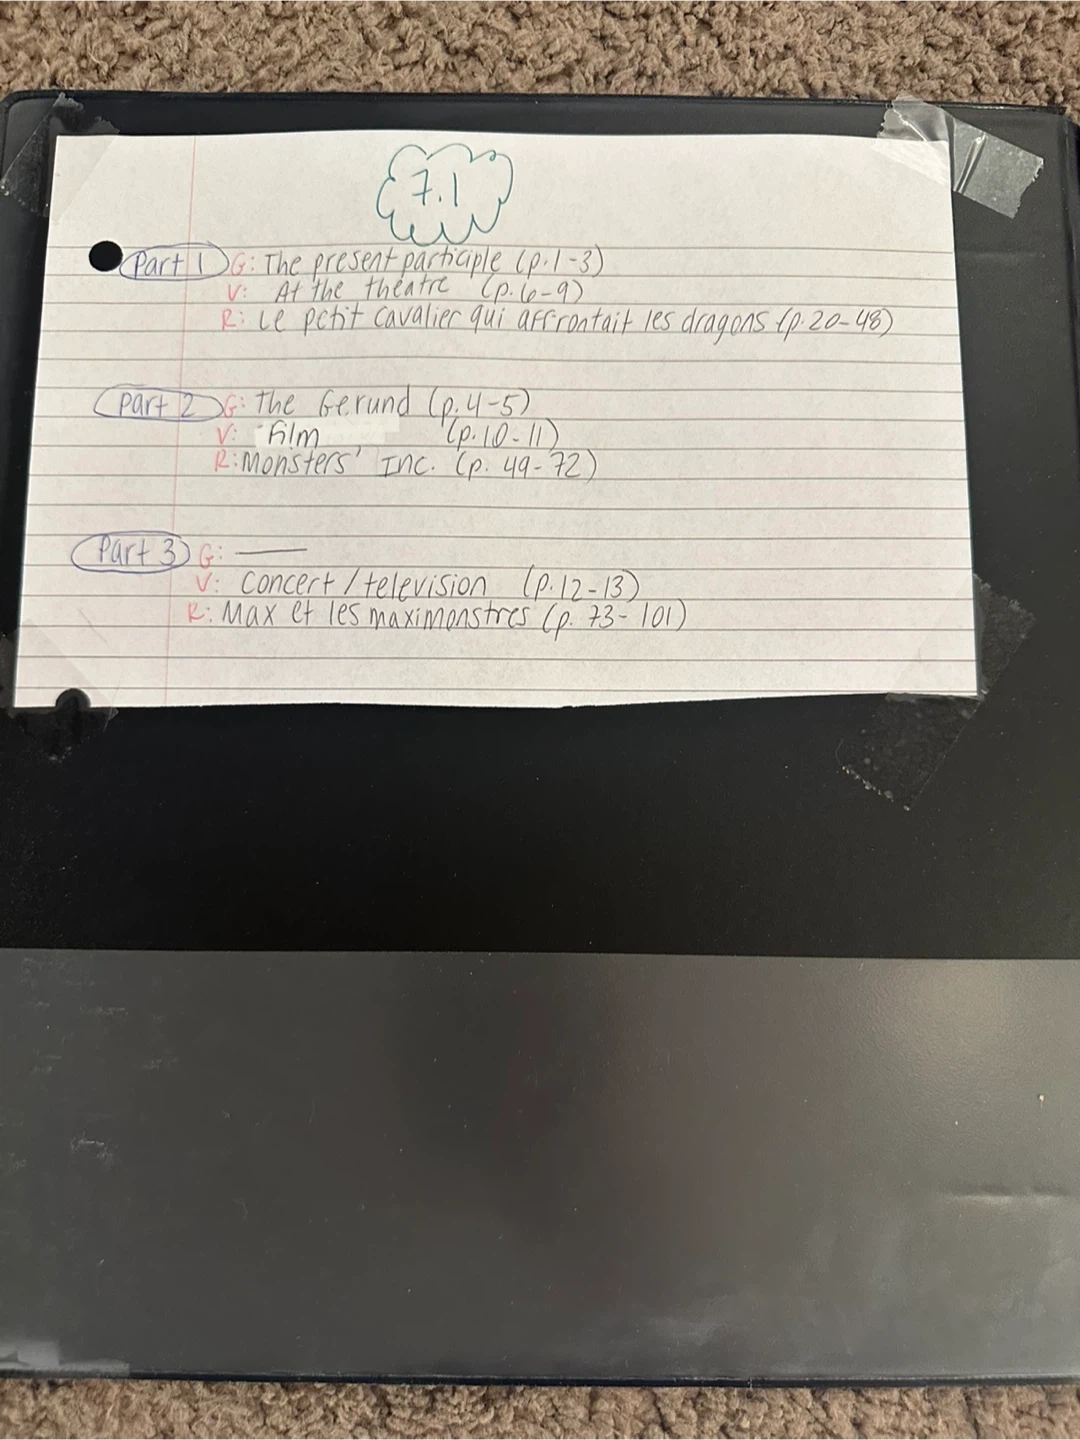 7.1
Part 1 G: The present participle (p.1-3)
V: At the théatre (p.6-9)
R: Le petit cavalier qui affrontait les dragons (p.20-48)
Part 2 G: The Gerund (p.4-5)
V: Film (p.10-11)
R: Monsters' Inc. (p. 49-72)
Part 3 G: —
V: Concert/television (p.12-13)
R: Max et les maximonstres (p. 73-101)